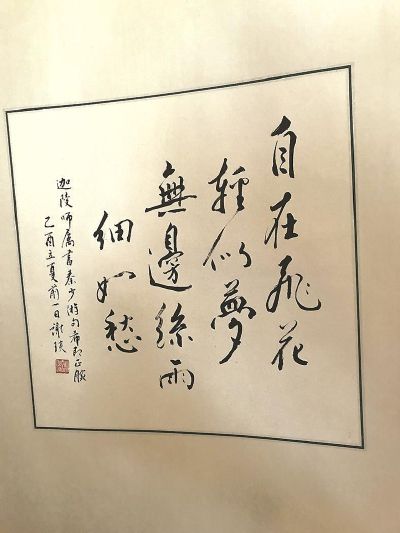 自在飛花
輕似夢
無邊絲雨
細如愁
迦陵師属書秦少游句希即正腕
乙酉立夏前一日謝琰